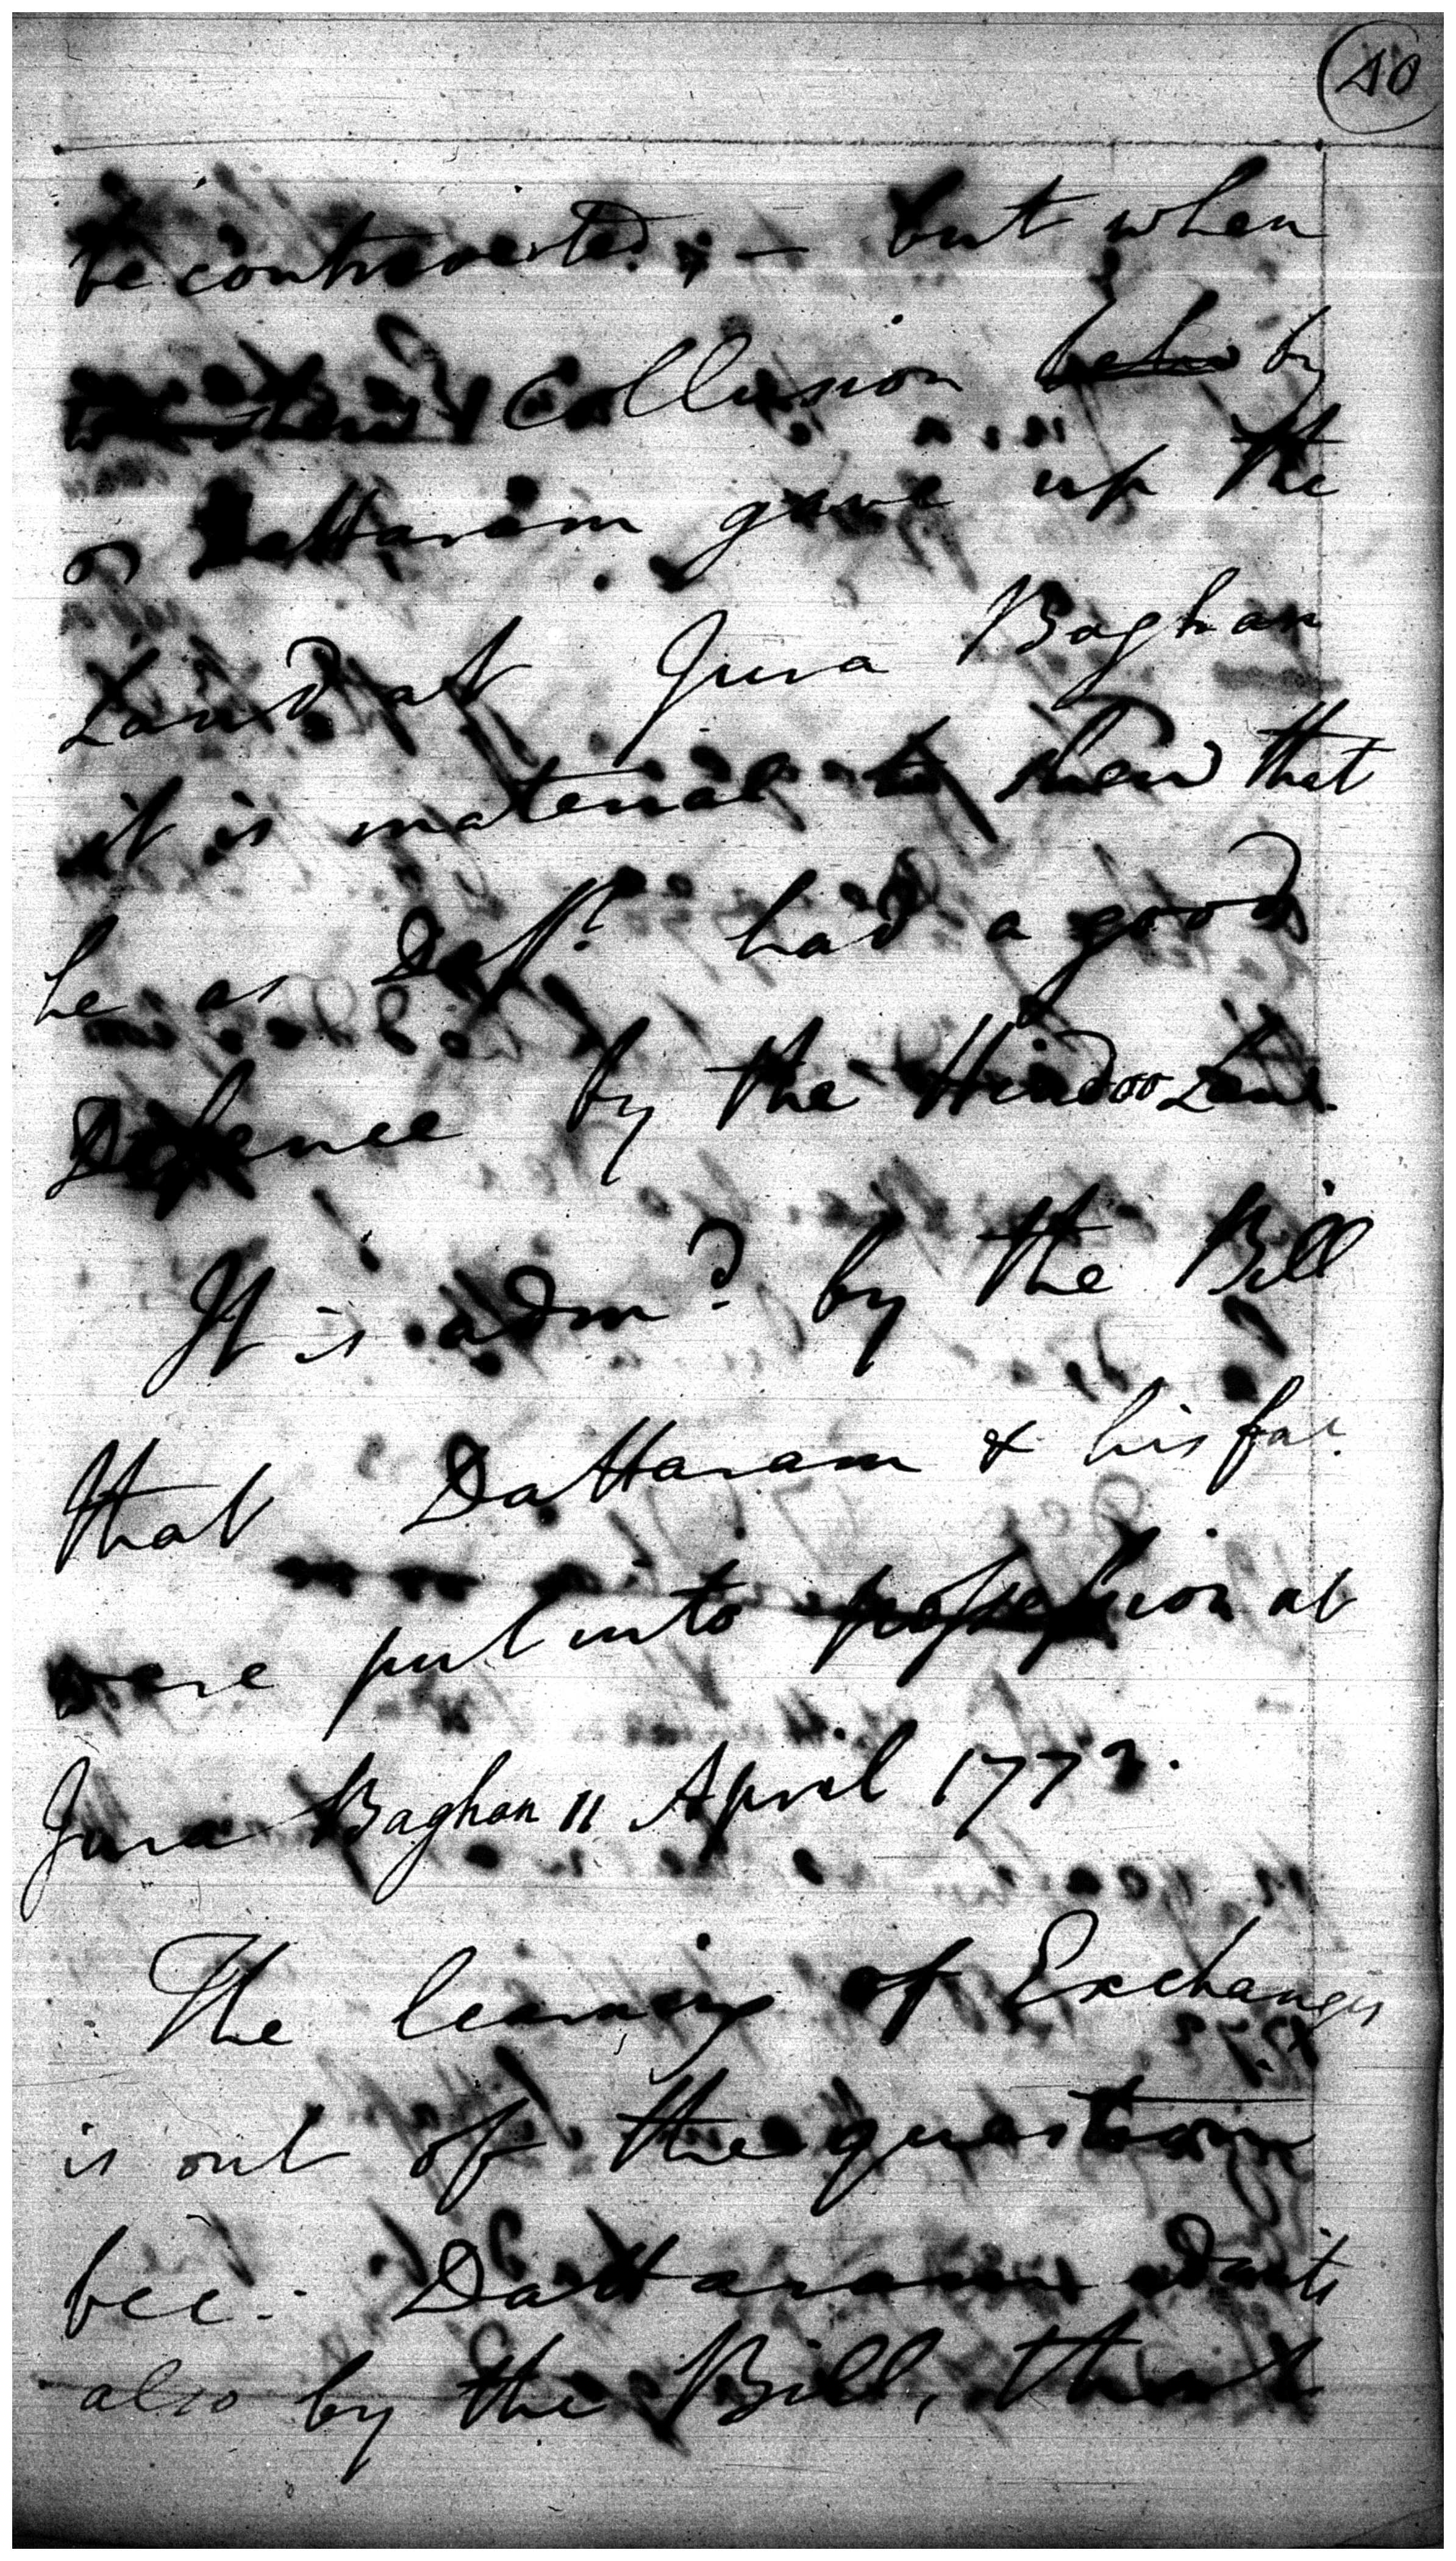 40
be controverted; — but when
Collusion by
or Dattaram gave up the
Land at Jura Baghan
it is material to shew that
he as Deft. had a good
Defence by the Hindoo Law.
It is admd. by the Bill
that Dattaram & his far.
were put into possession at
Jura Baghan 11 April 1773.
The learning of Exchanges
is out of the question
bec: Dattaram admits
also by the Bill, that